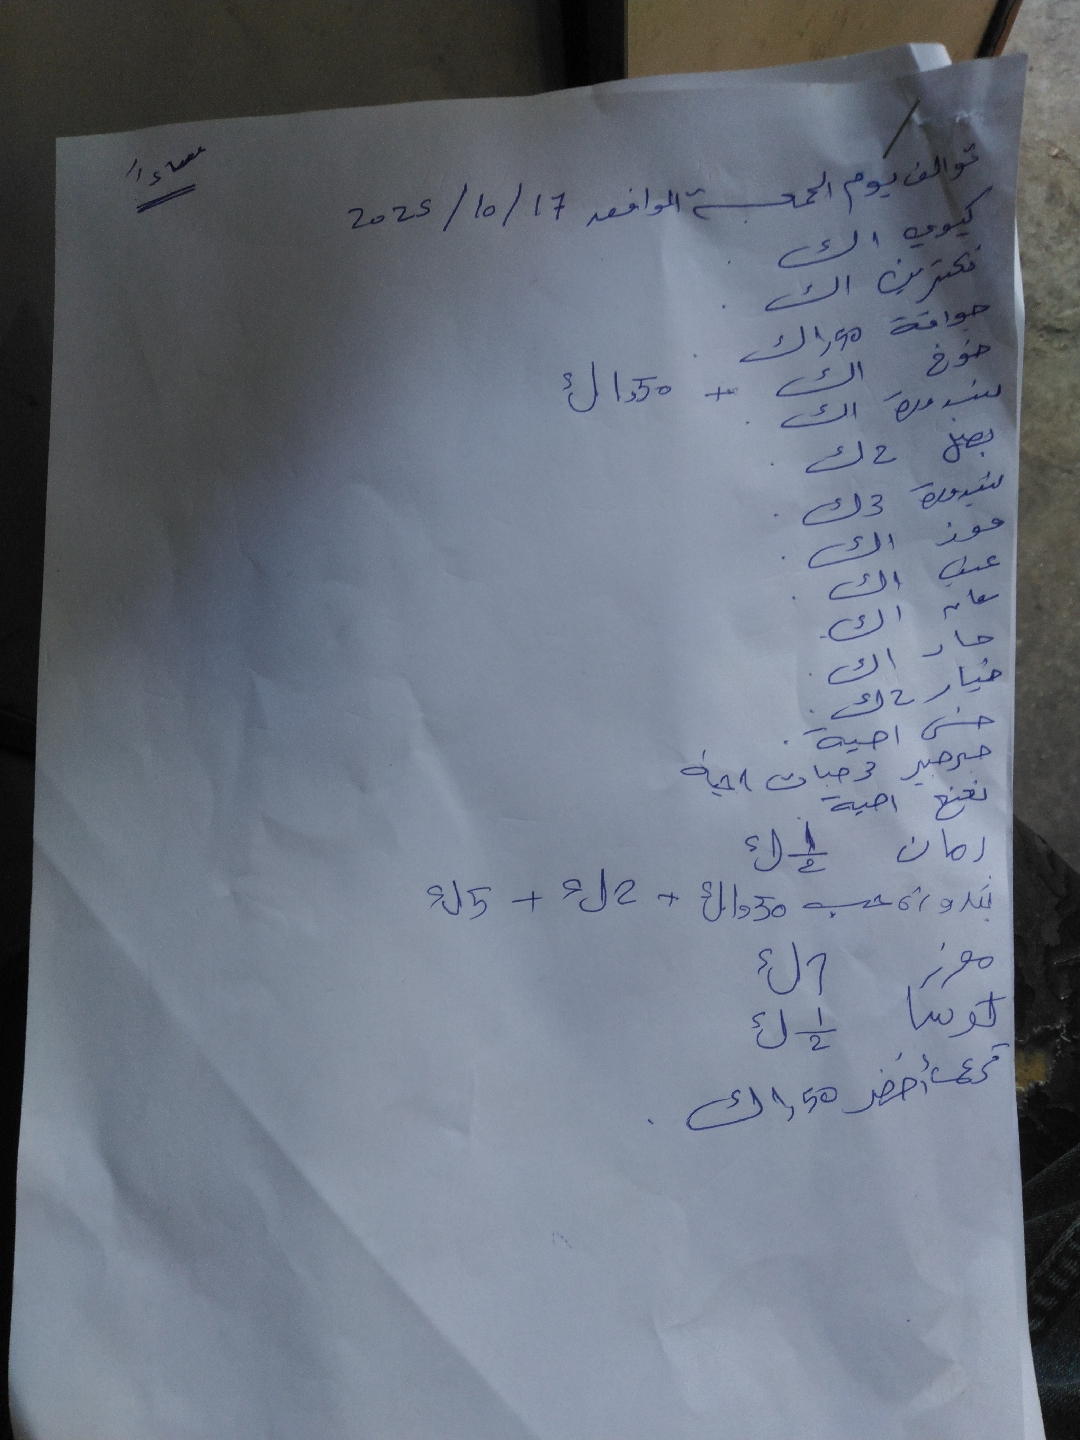 مساءً
توالف يوم الجمعة الموافق 17/10/2025
كيوي 1ك
نكترين 1ك
جوافة 1,50ك
خوخ 1ك + 1,50ك
بندورة 1ك
بصل 2ك
بندورة 3ك
موز 1ك
عنب 1ك
1ك
حار 1ك
خيار 2ك
خس 1حبة
جرجير 3 حبات 1حبة
نعنع 1حبة
رمان 1/2 ك
بندورة حب 1,50ك + 2ك + 5ك
موز 1ك
كوسا 1/2 ك
قرع أخضر 1,50ك